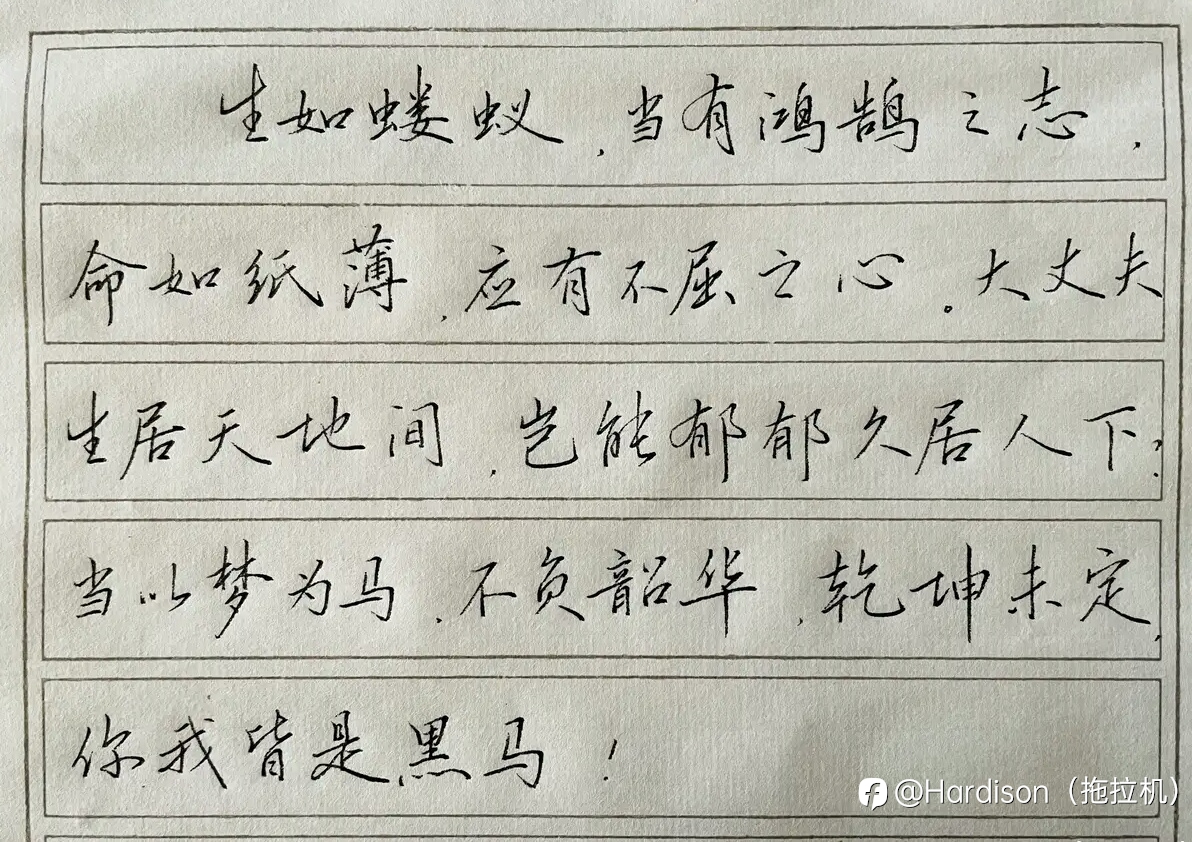 生如蝼蚁,当有鸿鹄之志,
命如纸薄,应有不屈之心。大丈夫
生居天地间,岂能郁郁久居人下;
当以梦为马,不负韶华,乾坤未定,
你我皆是黑马!
@Hardison(拖拉机)